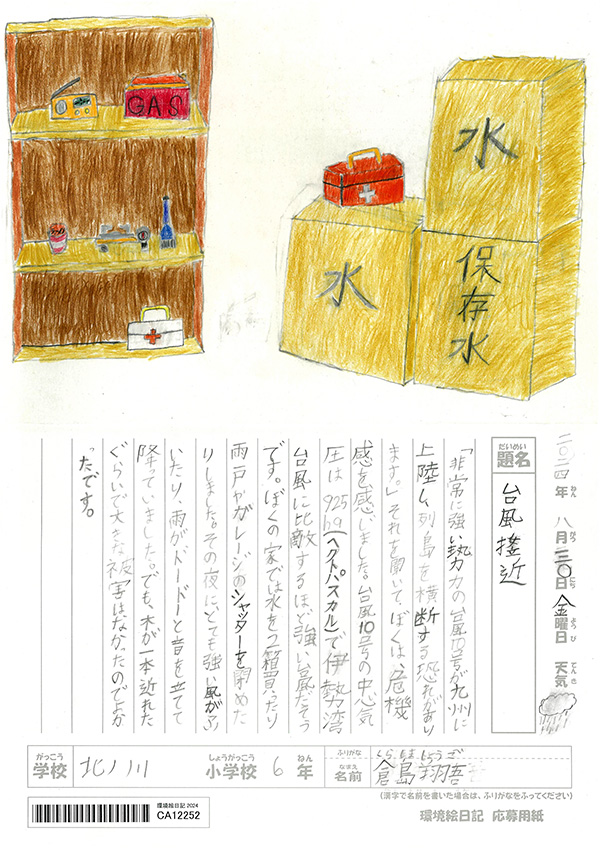 GAS
水
水
保存水
二〇二四年 八月三〇日 金曜日 天気
ねん がつ にち ようび てんき
だいめい
題名 台風接近
「非常に強い勢力の台風10号が九州に
上陸し、列島を横断する恐れがあり
ます。」それを聞いて、ぼくは、危機
感を感じました。台風10号の中心気
圧は925hg(ヘクトパスカル)で伊勢湾
台風に比敵するほど強い台風だそう
です。ぼくの家では水を2箱買ったり
雨戸やガレージのシャッターを閉めた
りしました。その夜に、とても強い風がふ
いたり、雨がドードーと音を立てて
降っていました。でも、木が一本
れた
ぐらいで大きな被害はなかったのでよか
ったです。
がっこう しょうがっこう ねん ふりがな くらしま しょうご
学校 北ノ川 小学校 6 年 なまえ 名前 倉島翔吾
(漢字で名前を書いた場合は、ふりがなをふってください)
環境絵日記 2024
CA12252
環境絵日記 応募用紙